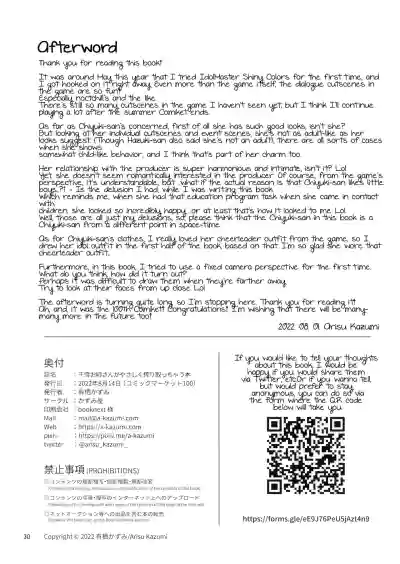 Afterword
Thank you for reading this book!
It was around May this year that I tried IdolMaster Shiny Colors for the first time, and
I got hooked on it right away. Even more than the game itself, the dialogue cutscenes in
the game are so fun!
Especially noctchill's and the like.
There's still so many cutscenes in the game I haven't seen yet, but I think I'll continue
playing a lot after the summer Comiket ends.
As far as Chiyuki-san's concerned, first of all she has such good looks, isn't she?
But looking at her individual cutscenes and event scenes, she's not as adult-like as her
looks suggest (Though Hazuki-san also said she's not an adult), there are all sorts of cases
when she shows
somewhat child-like behavior, and I think that's part of her charm too.
Her relationship with the producer is super harmonious and intimate, isn't it? Lol
Yet she doesn't seem romantically interested in the producer. Of course, from the game's
perspective, it's understandable, but "what if the actual reason is that Chiyuki-san likes little
boys..?! - is the delusion I had while I was writing this book.
Which reminds me, when she had that education program task when she came in contact
with
children, she looked so incredibly happy, or at least that's how it looked to me Lol
Well, those are all just my delusions, so please think that the Chiyuki-san in this book is a
Chiyuki-san from a different point in space-time.
As for Chiyuki-san's clothes, I really loved her cheerleader outfit from the game, so I
drew her idol outfit in the first half of the book, based on that. I'm so glad she wore that
cheerleader outfit.
Furthermore, in this book, I tried to use a fixed camera perspective for the first time.
What do you think, how did it turn out?
Perhaps it was difficult to draw them when they're farther away.
Try to look at their faces from up close Lol
The afterword is turning quite long, so I'm stopping here. Thank you for reading it!
Ah, and, it was the 100th Comiket! Congratulations! I'm wishing that there will be many-
many more in the future too!
2022. 08. 01. Arisu Kazumi
奥付
誌名 : 千雪お姉さんがやさしく搾り取っちゃう本
発行日 : 2022年8月14日（コミックマーケット100）
発行者 : 有栖かずみ
サークル : かずみ屋
印刷会社 : booknext 様
Mail : mail@a-kazumi.com
Web : https://a-kazumi.com
pixiv : https://pixiv.me/a-kazumi
twitter : @arisu_kazumi_
禁止事項 (PROHIBITIONS)
If you would like to tell your thoughts
about this book, I would be
happy if you would share them
via Twitter, etc. Or if you wanna tell,
but would prefer to stay
anonymous, you can do so via
the form where the QR code
below will take you.
https://forms.gle/eE9J76PeU5jAzt4n9
30 Copyright © 2022 有栖かずみ/Arisu Kazumi